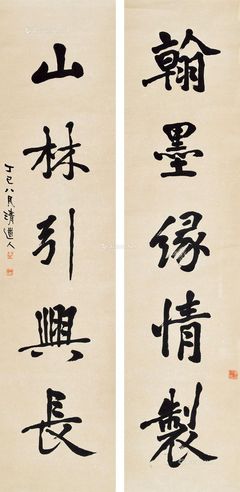 翰墨缘情製
山林引興長
丁巳八月清道人